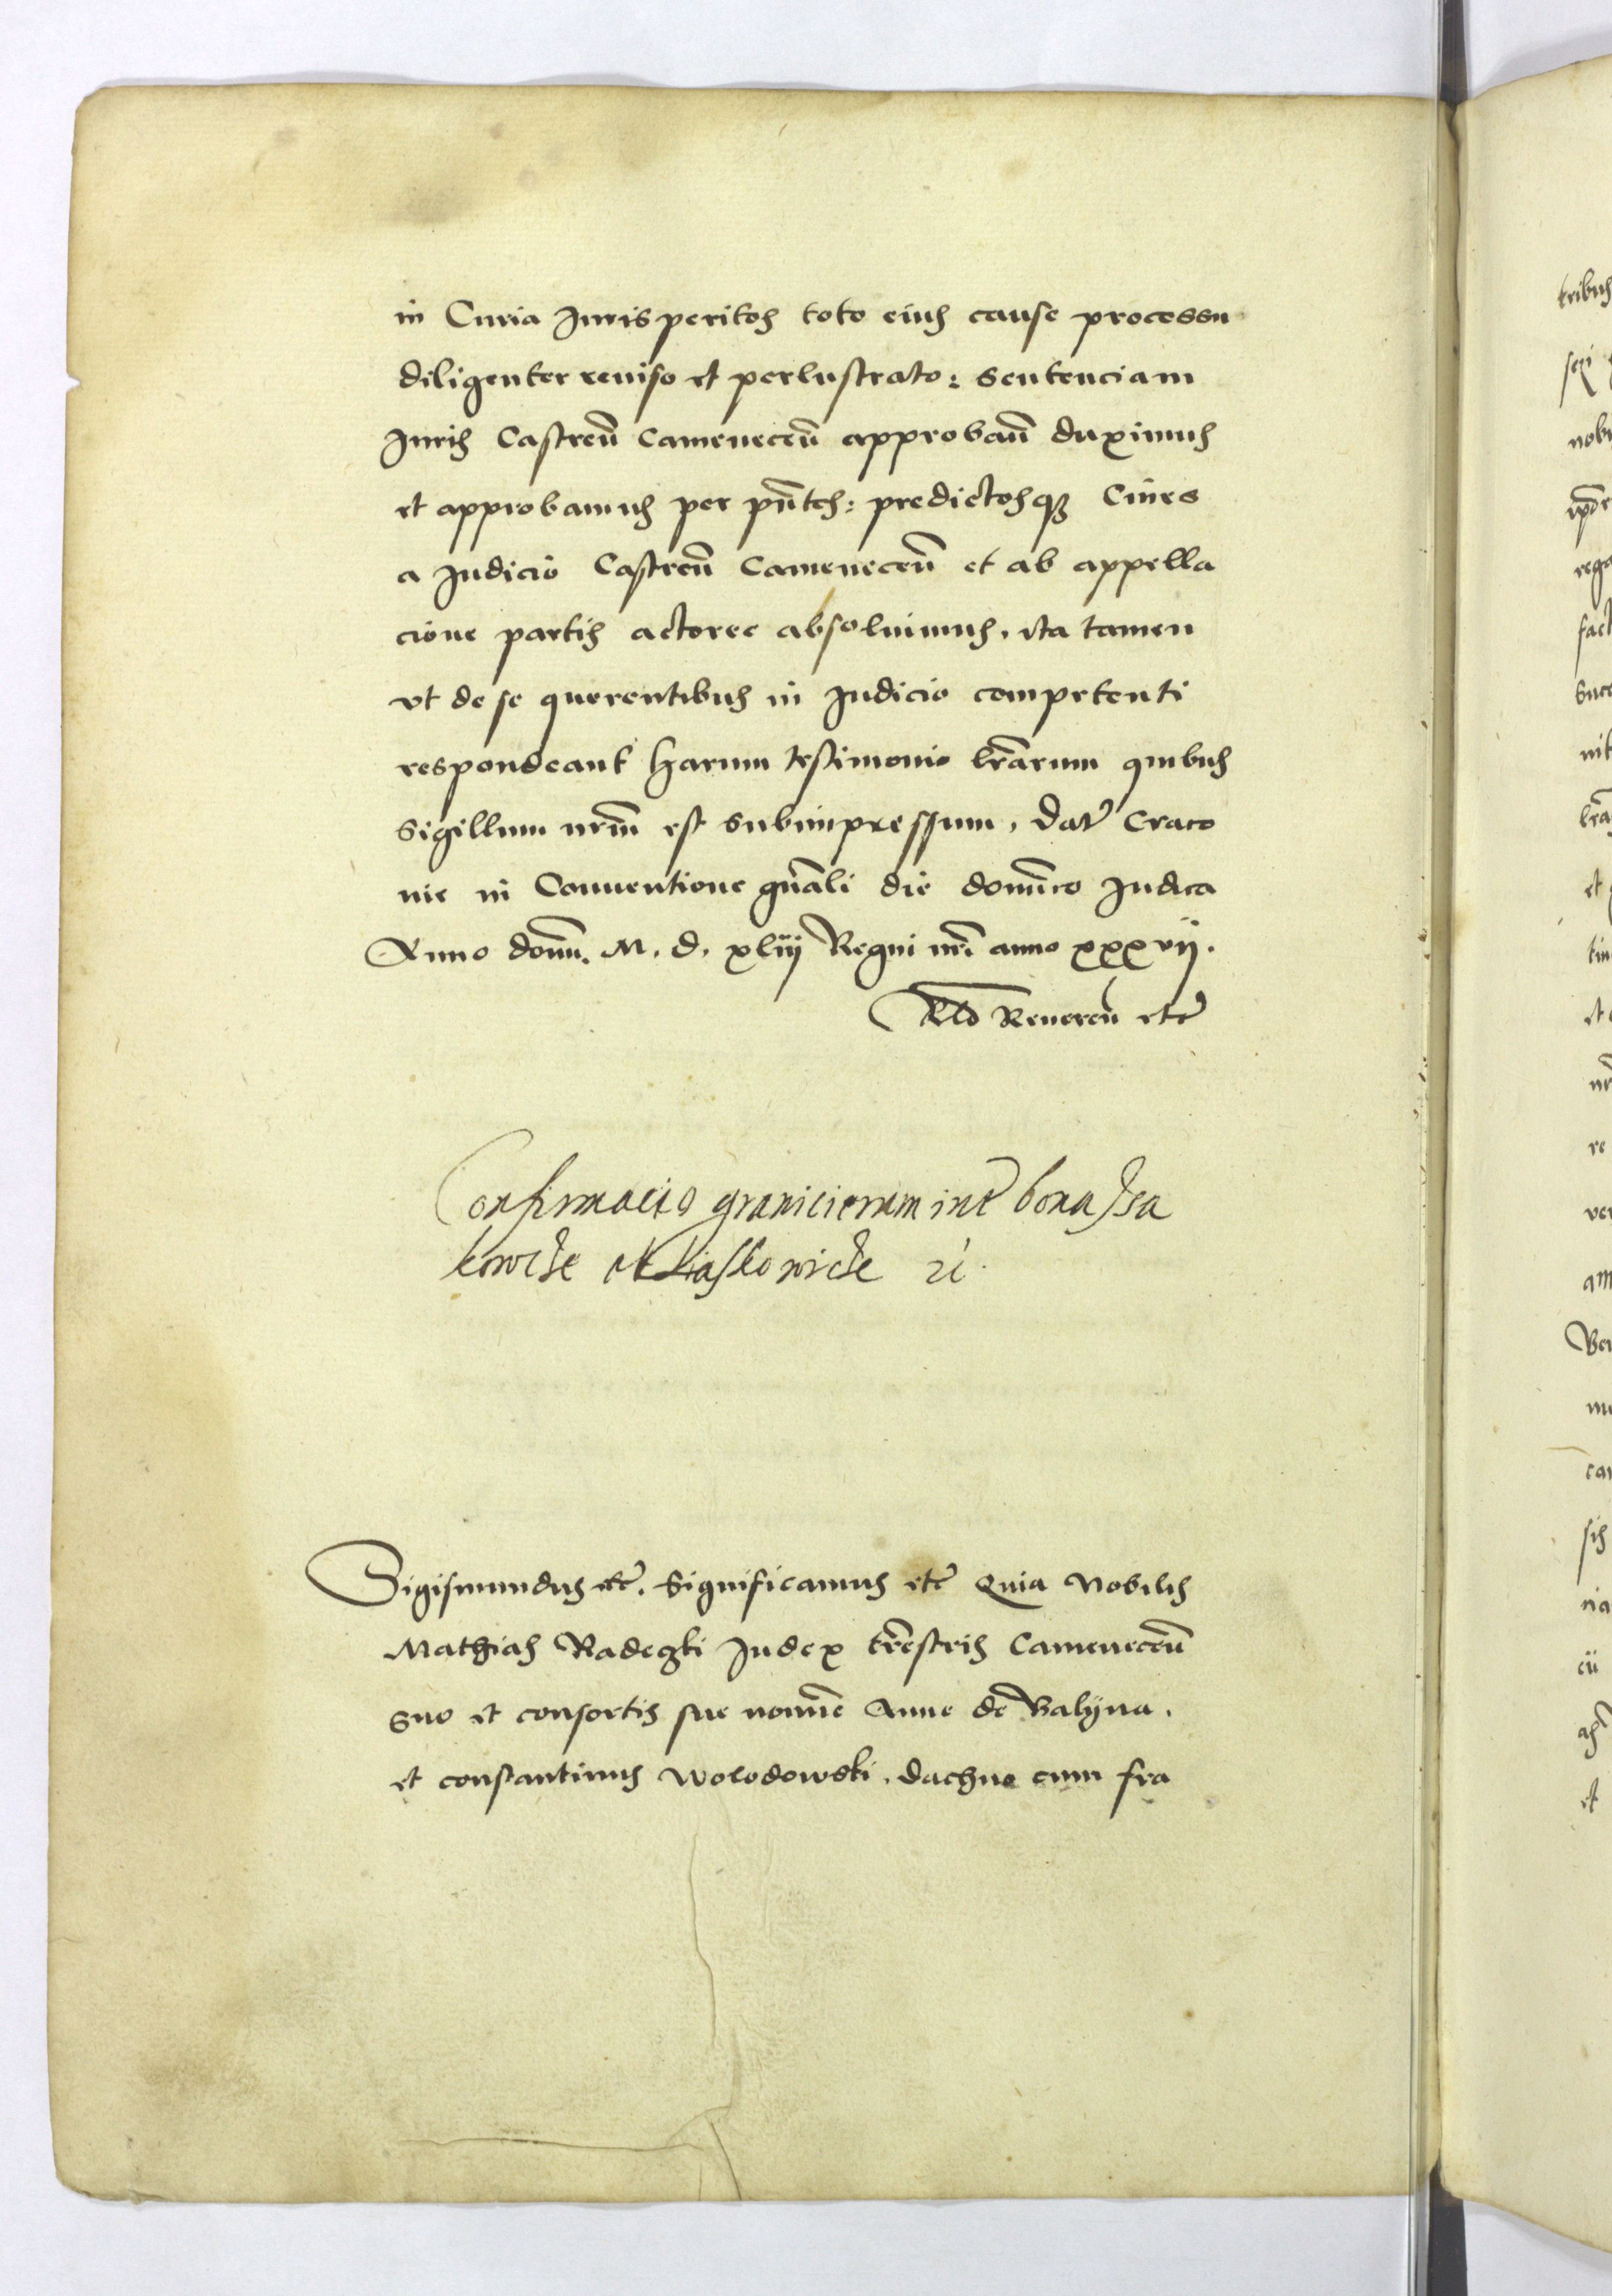 in Curia Juris peritos toto eius cause processu
diligenter reuiso et perlustrato: sentenciam
Juris Castreñ Cameneceñ approbañ duximus
et approbamus per pñtes: predictosqȝ Ciues
a Judicio Castreñ Cameneceñ et ab appella
cione partis actoree absoluimus, ita tamen
vt de se querentibus in Judicio competenti
respondeant harum testimonio lr̃arum quibus
Sigillum nr̃m est subimpressum, Dat̃ Craco
nie in Conuentione gñali die domĩco Judica
Anno domĩ. M. d. xliij Regni nr̃i anno xxxvij.
Rło Reuereñ etc̃
Confirmacio granicierum int̃ bona
kowcze et Liaskowicze
Sigismundus etc̃. Significamus etc̃ Quia Nobilis
Mathias Radeczki Judex tr̃estris Cameneceñ
suo et consortis sue nomĩe Anne de Balijna.
et constantinus Wolodowski. dachno cum fra
tribus
nobi
rega
fact
succ
nit
et
re
ver
am
nia
et